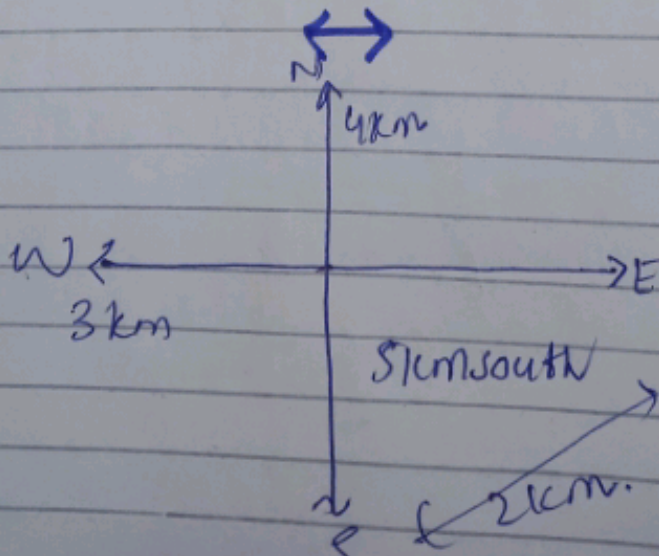 N
4km
W E
3km
5kmsouth
2km.
S